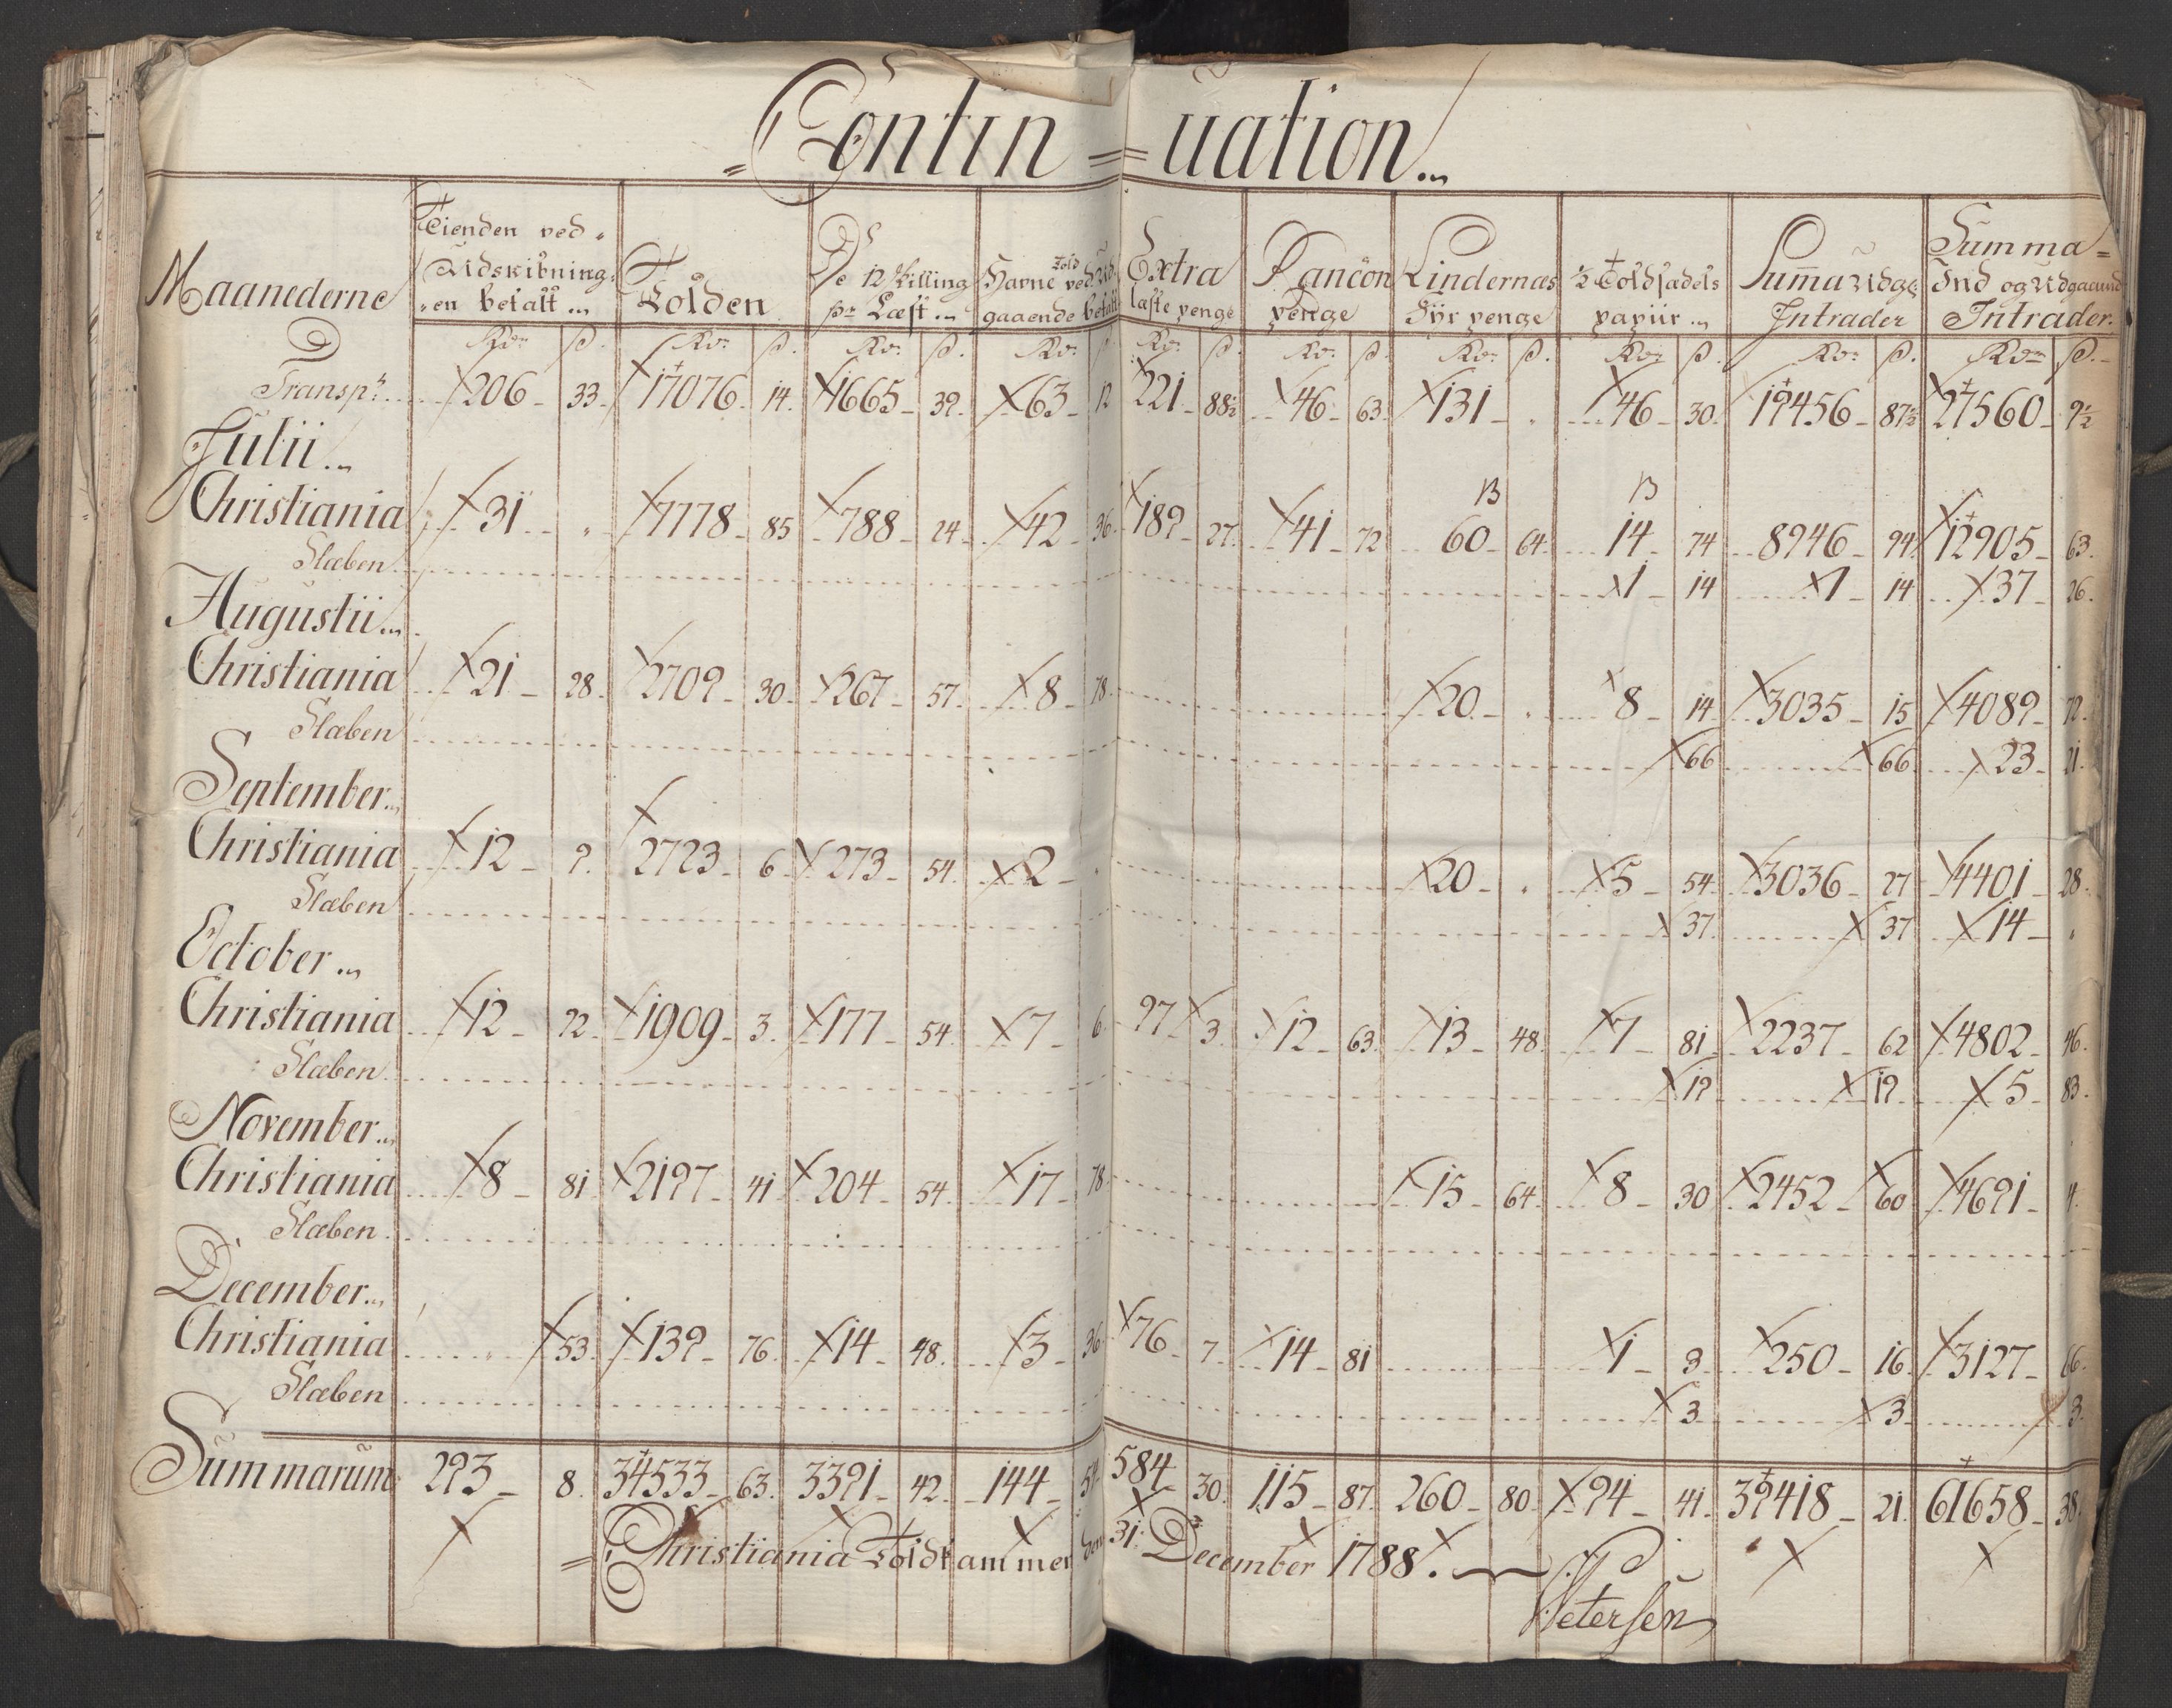 = Contin = uation ...
Maanederne
Tienden ved Udskibningen betalt ...
Tolden
De 12 skilling pr Læst ...
Havne Told ved Udgaaende betalt
Extra laste penge
Rancon penge
Lindernæs Fyr penge
½ Toldsædels papiir ...
Summa Udg: Intrader
Summa Ind og Udgaaende Intrader.
Rdr ß. Rdr ß. Rdr ß. Rdr ß. Rdr ß. Rdr ß. Rdr ß. Rdr ß. Rdr ß. Rdr ß.
Transpt. 206 33 17076 14 1665 39 63 12 221 88½ 46 63 131 " 46 30 19456 87½ 27560 9½
Julii ...
Christiania 31 " 7778 85 788 24 42 36 189 27 41 72 60 64 14 74 8946 94 12905 63
Slæben 1 14 1 14 37 26
Augustii ...
Christiania 21 28 2709 30 267 57 8 78 20 " 8 14 3035 15 4089 72
Slæben 66 66 23 21
September ...
Christiania 12 9 2723 6 273 54 2 " 20 " 5 54 3036 27 4401 28
Slæben 37 37 14 "
October ...
Christiania 12 72 1909 3 177 54 7 6 97 3 12 63 13 48 7 81 2237 62 4802 46
Slæben 19 19 5 83
November ...
Christiania 8 81 2197 41 204 54 17 78 15 64 8 30 2452 60 4691 4
Slæben
December ...
Christiania " 53 139 76 14 48 3 36 76 7 14 81 1 3 250 16 3127 66
Slæben 3 3 3
Summarum 293 8 34533 63 3391 42 144 54 584 30 115 87 260 80 94 41 39418 21 61658 38
= Christiania Toldkammer den 31: December 1788.
Petersen